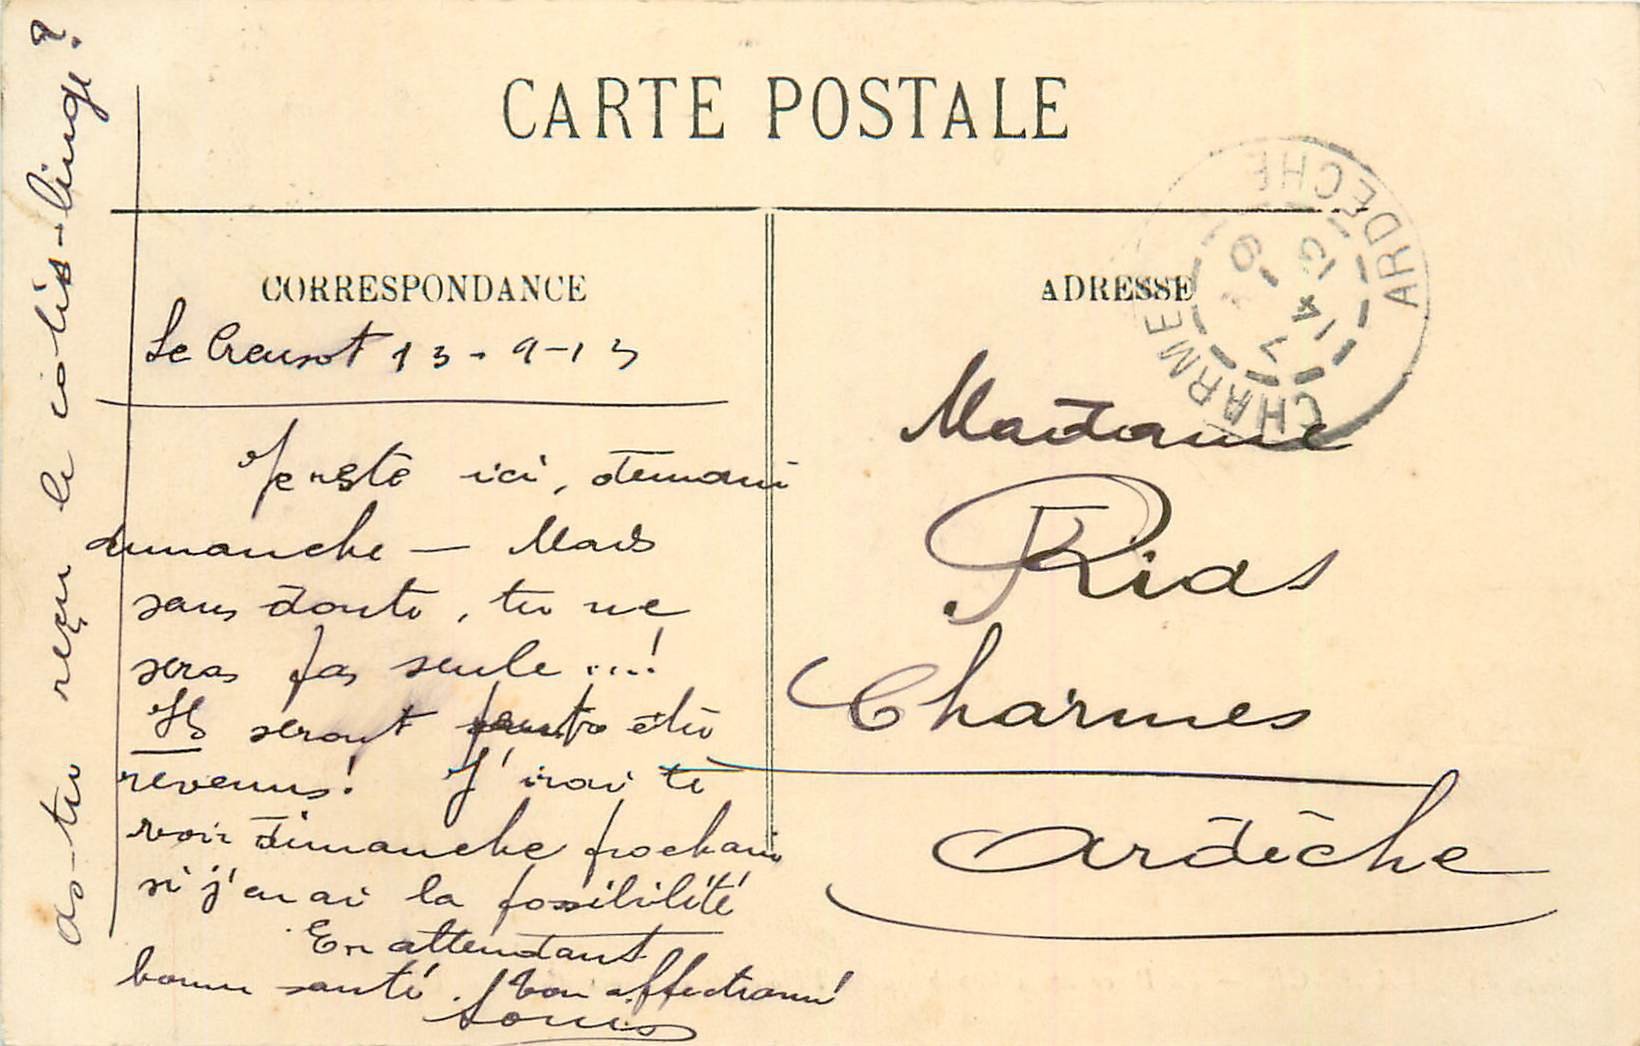 CARTE POSTALE
CORRESPONDANCE
Le Creusot 13-9-13
Je reste ici, demain
dimanche — Mais
sans doute, tu ne
seras pas seule ...!
Ils seront peut être
revenus! J'irai te
voir dimanche prochain
si j'en ai la possibilité
En attendant
bonne santé. Ton affectionné
Louis
as-tu reçu le colis-linge?
ADRESSE
Madame
Rias
Charmes
Ardèche
CHARMES ARDECHE
7
14
9
13